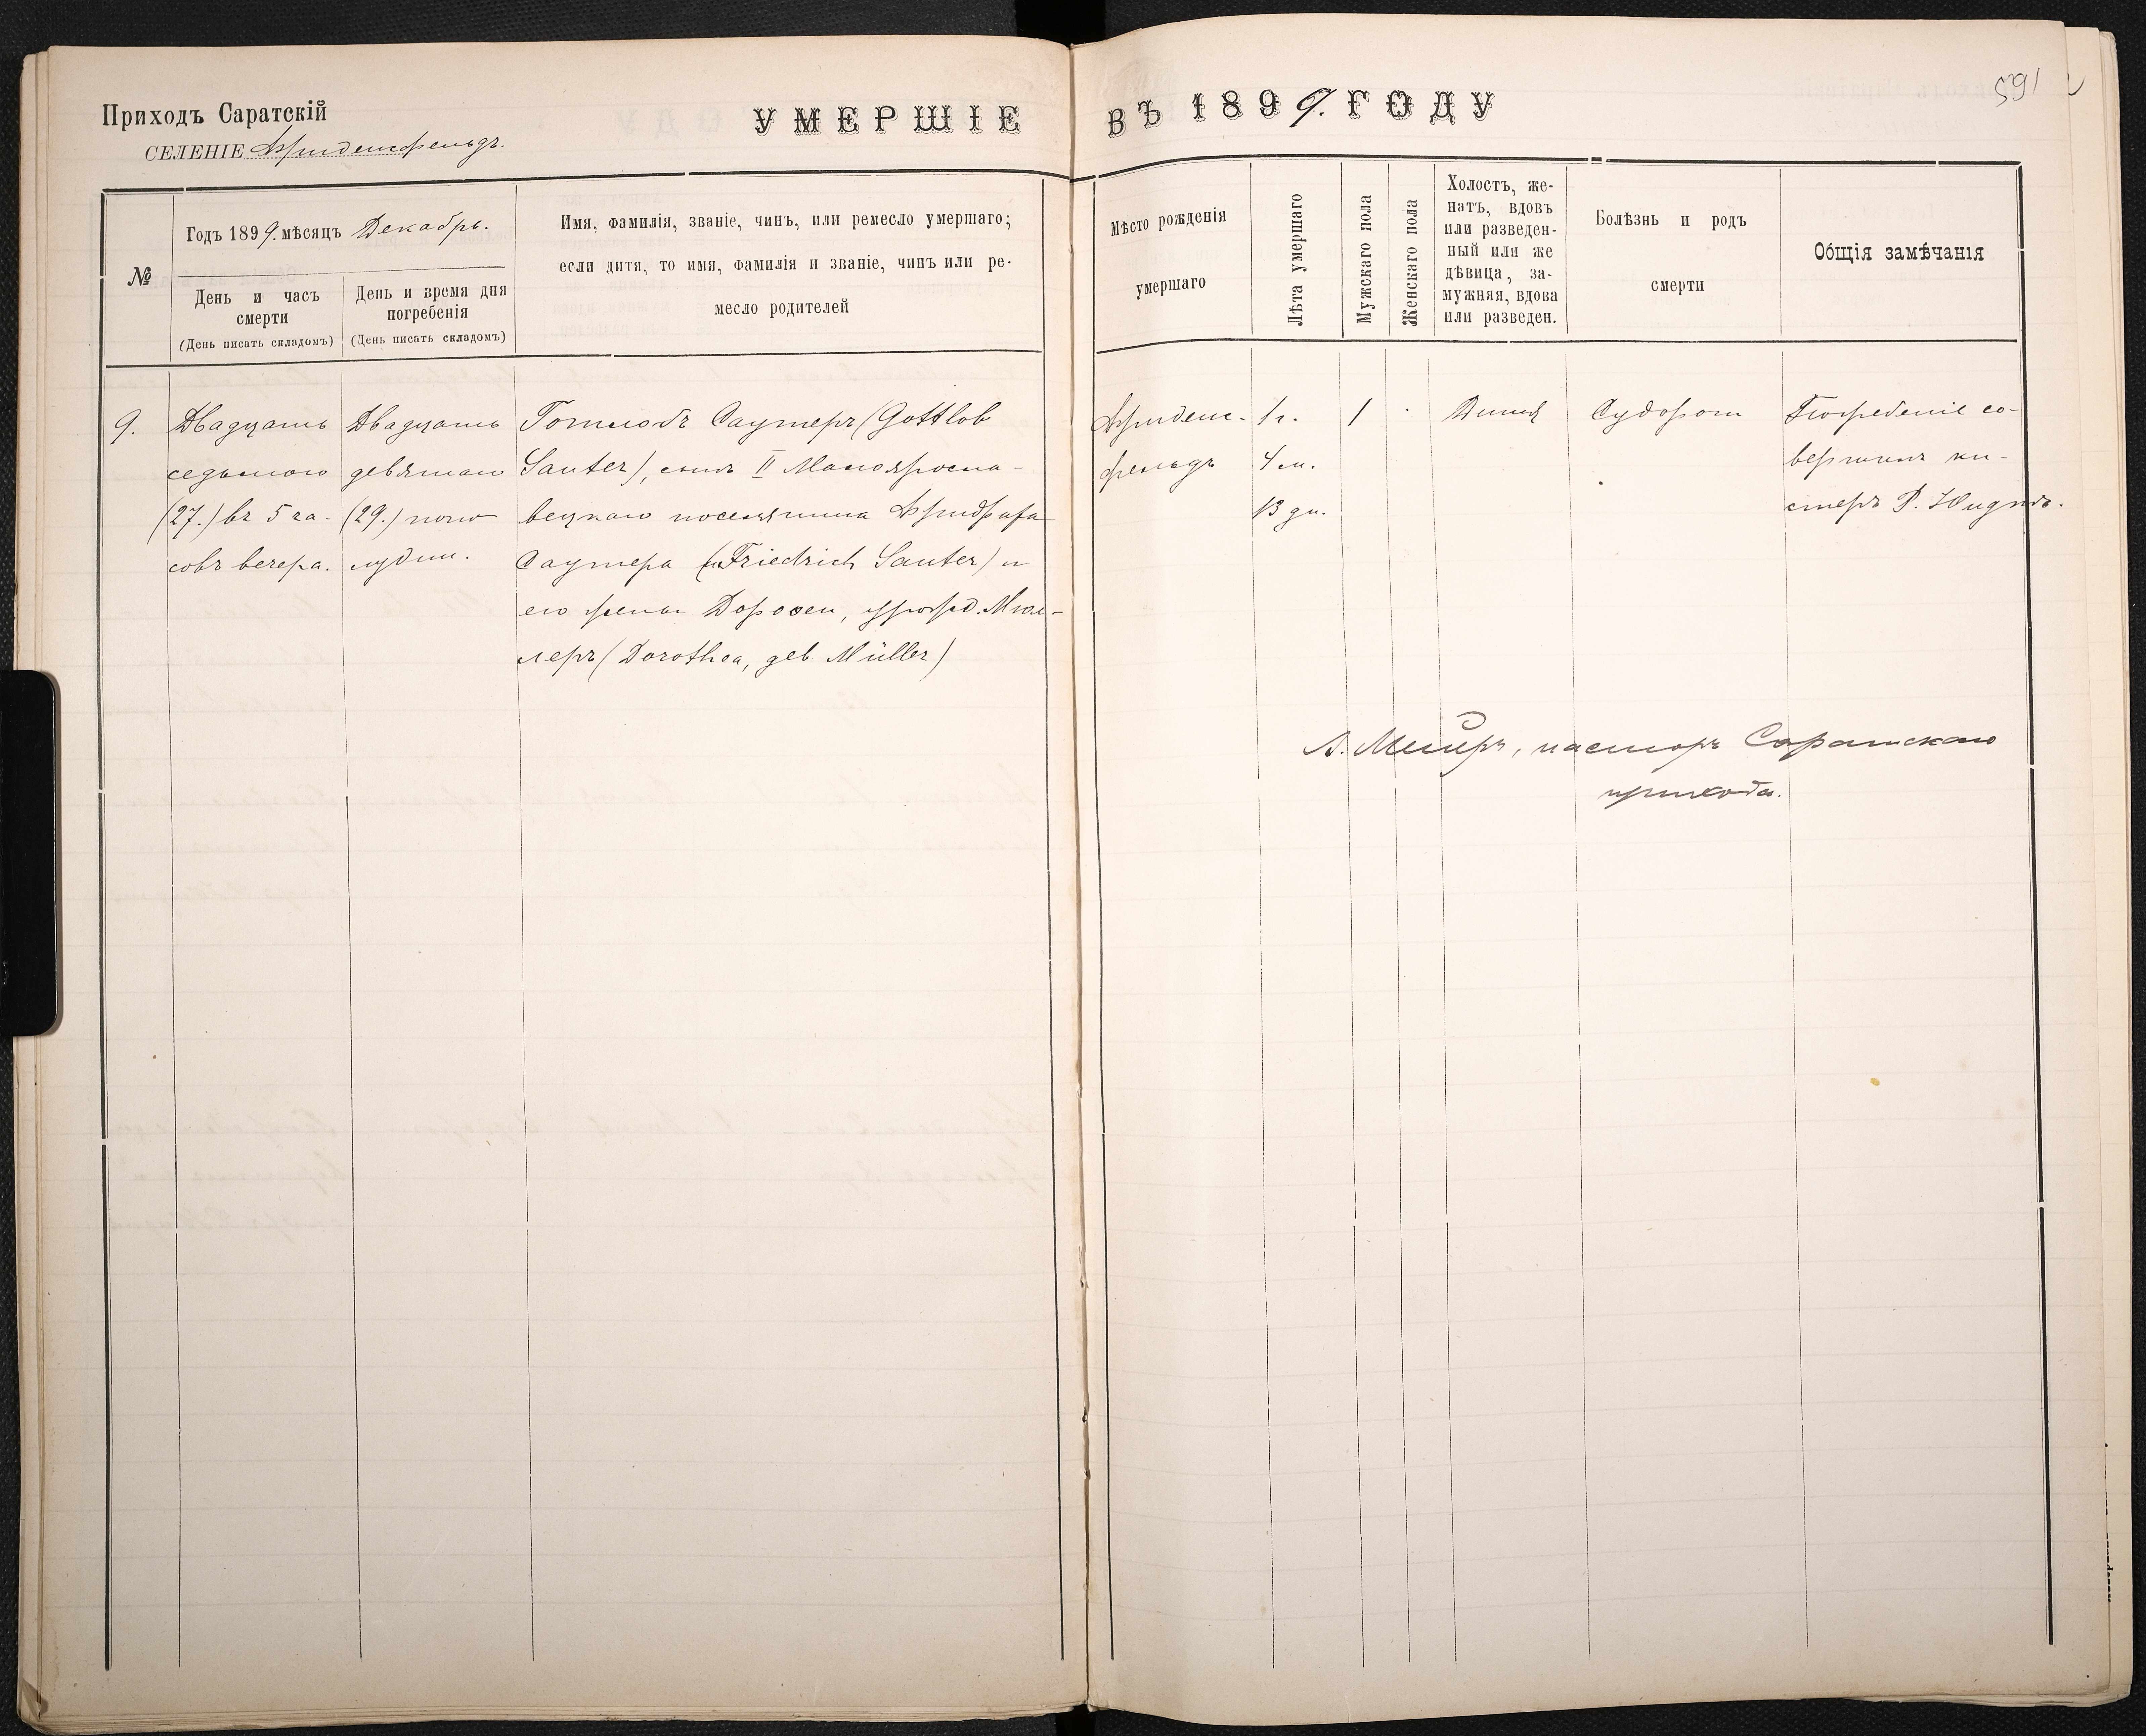 Приходъ Саратскій
СЕЛЕНІЕ Фриденсфельдъ.
УМЕРШІЕ ВЪ 1899. ГОДУ
591
№
Годъ 1899. мѣсяцъ Декабрь.
День и часъ
смерти
(День писать складомъ)
День и время дня
погребенія
(День писать складомъ)
Имя, фамилія, званіе, чинъ, или ремесло умершаго;
если дитя, то имя, фамилія и званіе, чинъ или ре-
месло родителей
Мѣсто рожденія
умершаго
Лѣта умершаго
Мужскаго пола
Женскаго пола
Холостъ, же-
натъ, вдовъ
или разведен-
ный или же
дѣвица, за-
мужняя, вдова
или разведен.
Болѣзнь и родъ
смерти
Общія замѣчанія
9.
Двадцать
седьмого
(27.) въ 5 ча-
совъ вечера.
Двадцать
девятаго
(29.) попо-
лудни.
Готлобъ Саутеръ (Gottlob
Sauter), сынъ II Малояросла-
вецкаго поселянина Фридриха
Саутера (Friedrich Sauter) и
его жены Доротеи, урожд. Мюл-
леръ (Dorothea, geb. Müller)
Фриденс-
фельдъ
1 г.
4 м.
13 дн.
1
Дитя
Судороги
Погребеніе со-
вершилъ ки-
стеръ Р.
А. Мейеръ, пасторъ Саратскаго
прихода.